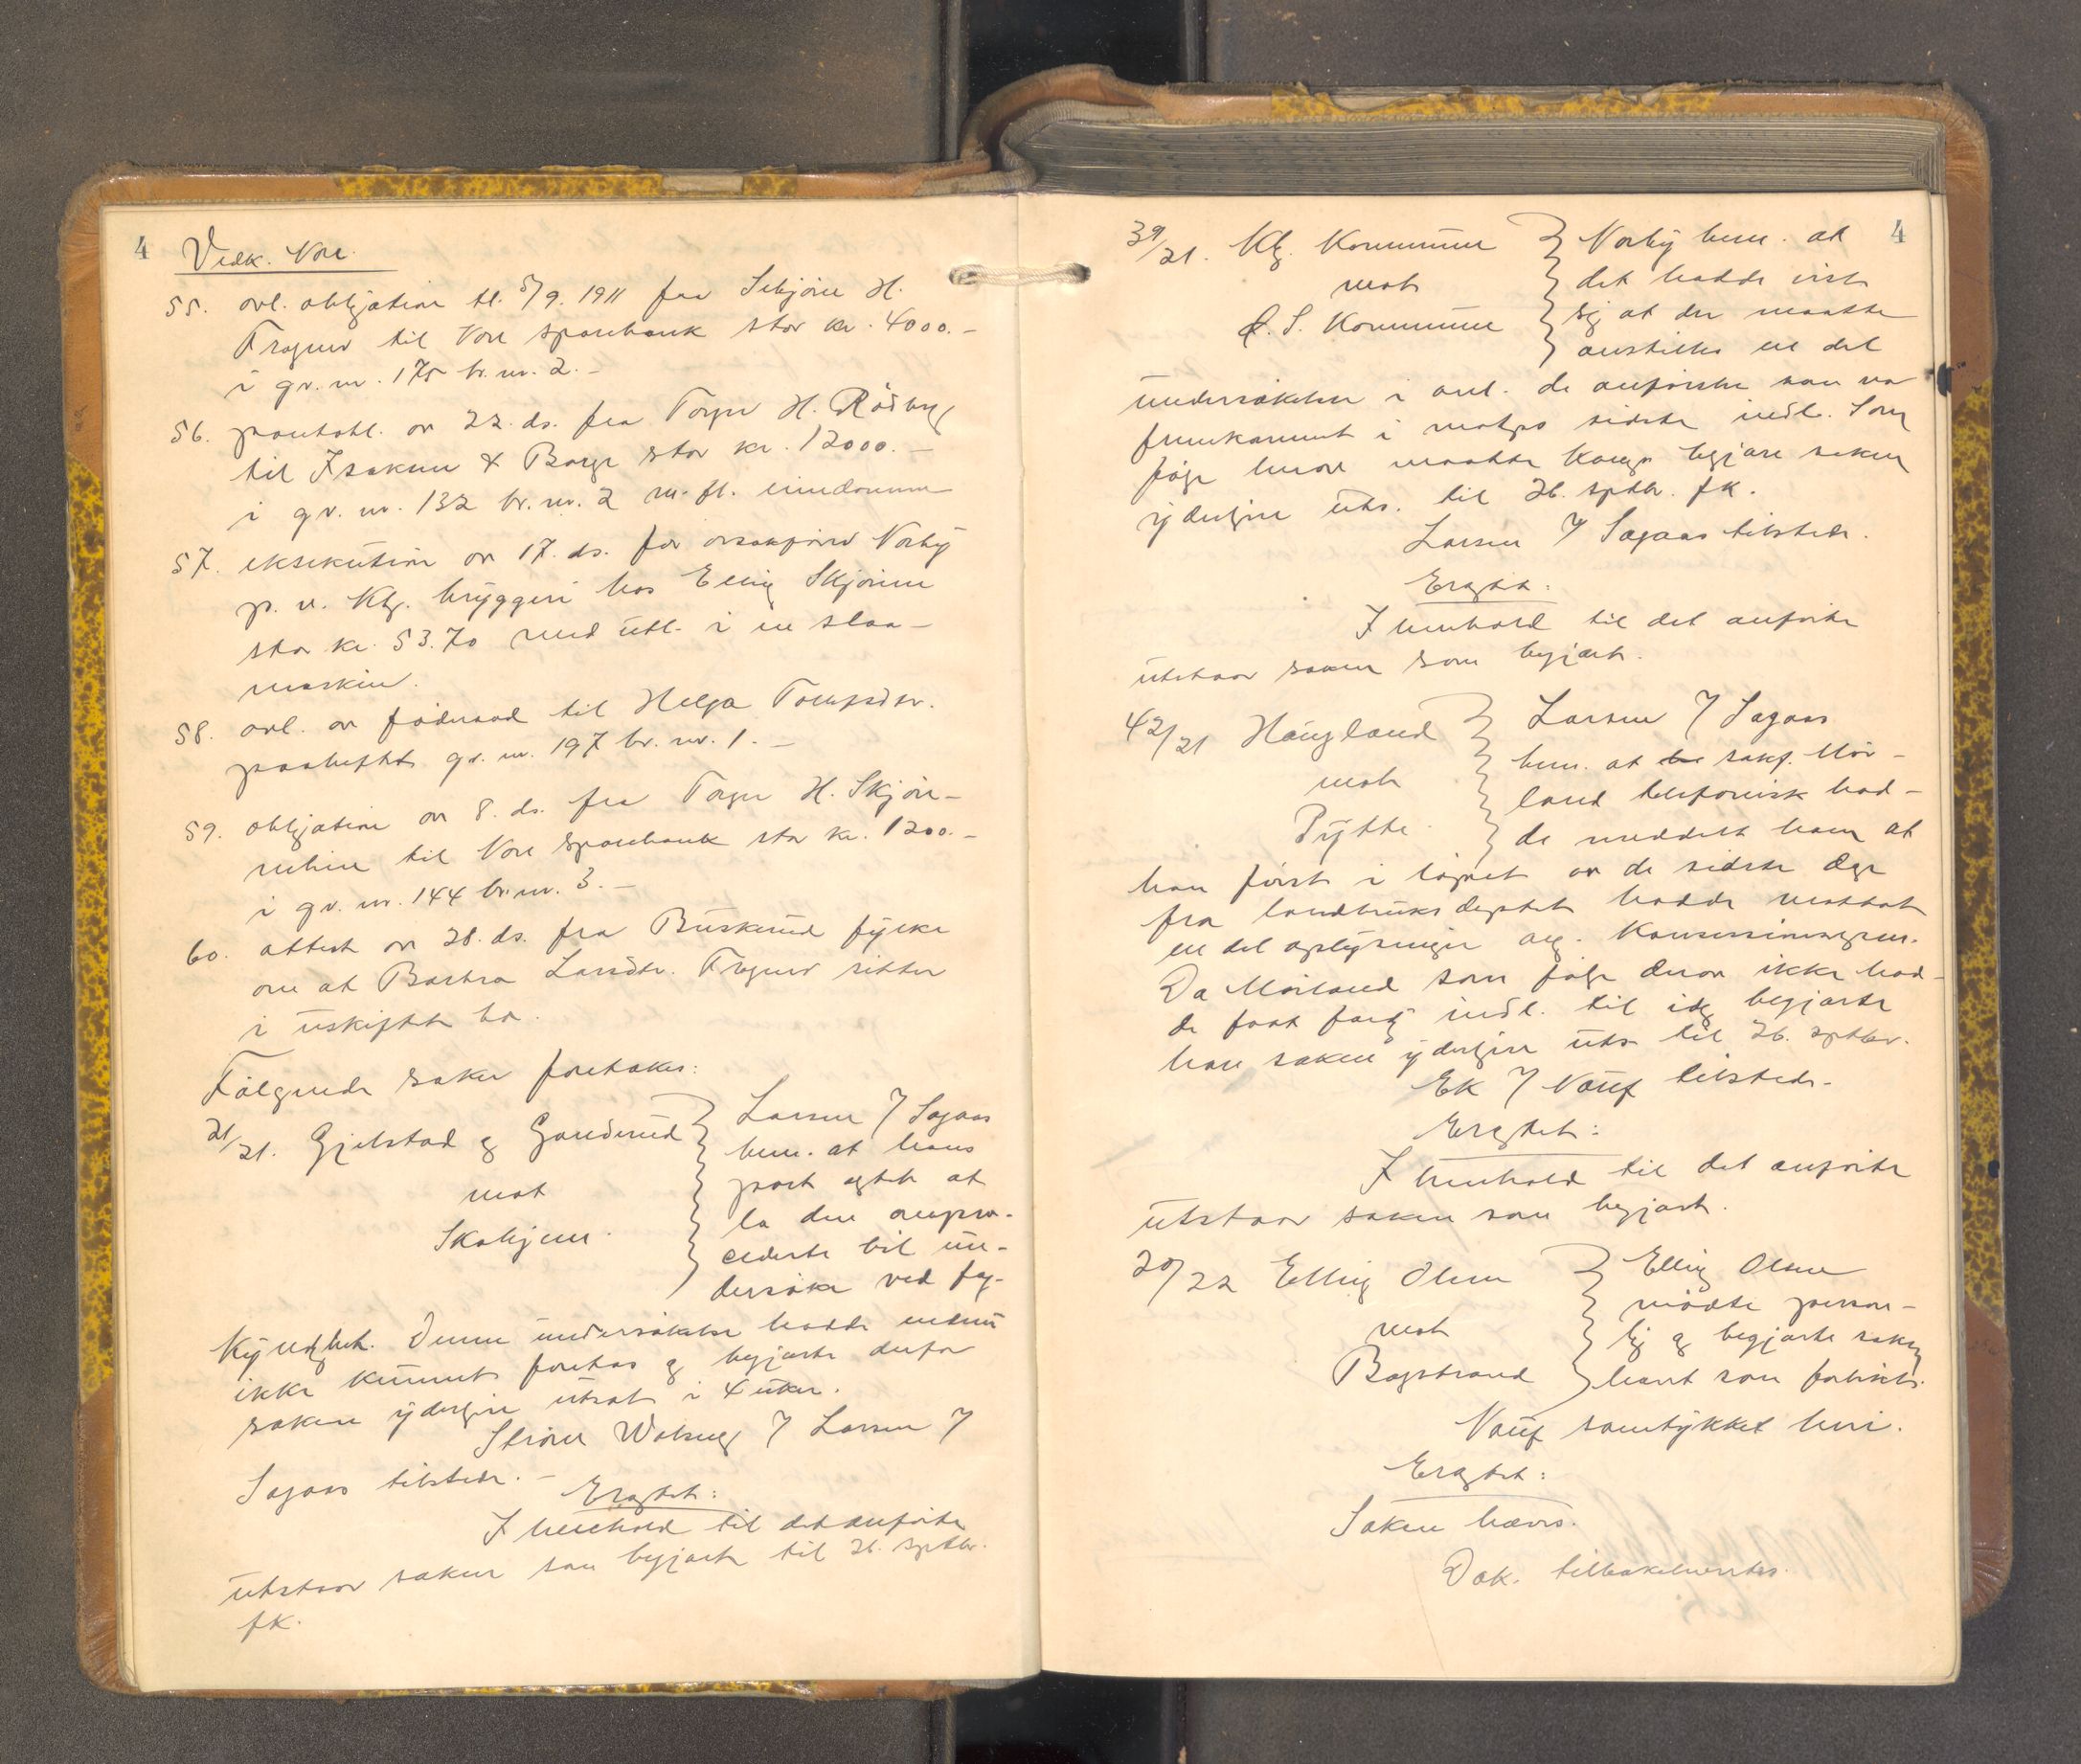 4 Vedk. Nore.
55. avl. obligation tl. 5/9. 1911 fra Sebjörn H.
Fragner til Nore sparebank stor kr. 4000.-
i gr. nr. 175 br. nr. 2.-
56. pantobl. av 22. ds. fra Torger H. Rödberg
til Isaksen & Borge stor kr. 12000.-
i gr. nr. 132 br. nr. 2 m. fl. eiendomme
57. eksekution av 17. ds. for orsakförer Norby
p. v. Kbg. bryggeri hos Elling Skjönne
stor kr. 53.70 med utl. i en slaa-
maskin.
58. avl. av föderaad til Helga
paaheftet gr. nr. 197 br. nr. 1.-
59. obligation av 8. ds. fra Torger H. Skjön-
til Nore sparebank stor kr. 1200.-
i gr. nr. 144 br. nr. 3.-
60. attest av 28. ds. fra Buskerud fylke
om at Barbra Larsdtr. Fragner sitter
i uskiftet bo.
Følgende saker foretokes:
21/21. Gjelstad og Ganderud
mot
Skabjenn.
Larsen f Sagaas
bem. at hans
part agtet at
la den
cederte bil un-
dersøke ved fag-
kyndighet. Denne undersøkelse hadde endnu
ikke kunnet foretas og begjærte derfor
saken yderligere utsat i 4 uker.
Larsen f
Sagaas tilstede.-
Eragtet:
I henhold til det anførte
utstaar saken som begjært til 26. sptbr.
fk.
4
39/21. Kbg. Kommune
mot
Ø. S. Kommune
Norby bem. at
det hadde vist
sig at der maatte
anstilles en del
undersøkelser i anl. de anførsler som var
fremkommet i motps sidste indl. Som
følge herav maatte begjære saken
yderligere uts. til 26. sptbr. fk.
Larsen f Sagaas tilstede.
Eragtet:
I henhold til det anførte
utstaar saken som begjært.
42/21 Haugland
mot
Pytte.
Larsen f Sagaas
bem. at sakf. Mör-
land telefonisk had-
de meddelt ham at
han først i løpet av de sidste dage
fra landbruksdeptet hadde mottat
en del oplysninger ang.
Da Mörland som følge derav ikke had-
de faat færdig indl. til idag begjærte
han saken yderligere uts. til 26. sptbr.
Ek f Nauf tilstede.-
Eragtet:
I henhold til det anførte
utstaar saken som begjært.
20/22 Elling Olsen
mot
Bagstrand
Elling Olsen
mödte person-
lig og begjærte saken
hævet som forlikt.
Nauf samtykket heri.
Eragtet:
Saken hæves.
Dok. tilbakeleveres.